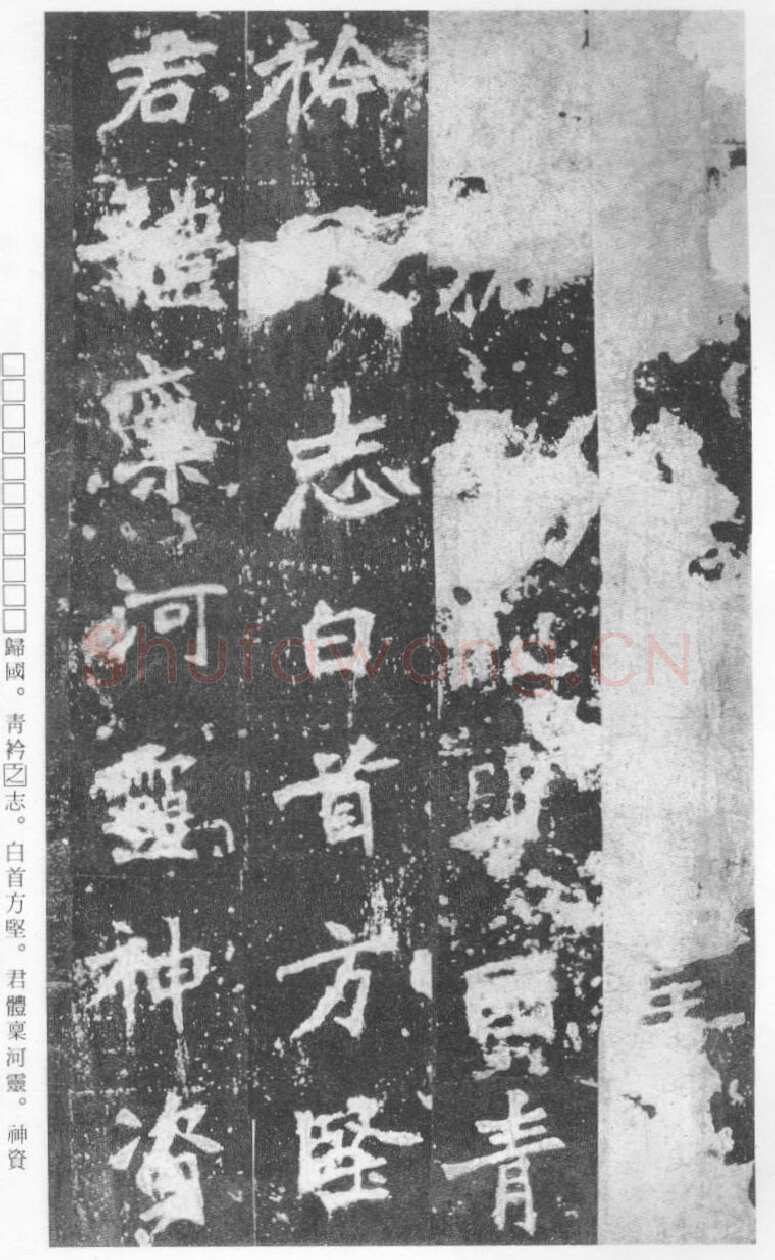 國青
衿之志白首方堅
君體稟河靈神資
□□□□□□□□□□□歸國。青衿之志。白首方堅。君體稟河靈。神資
Shufawang.CN